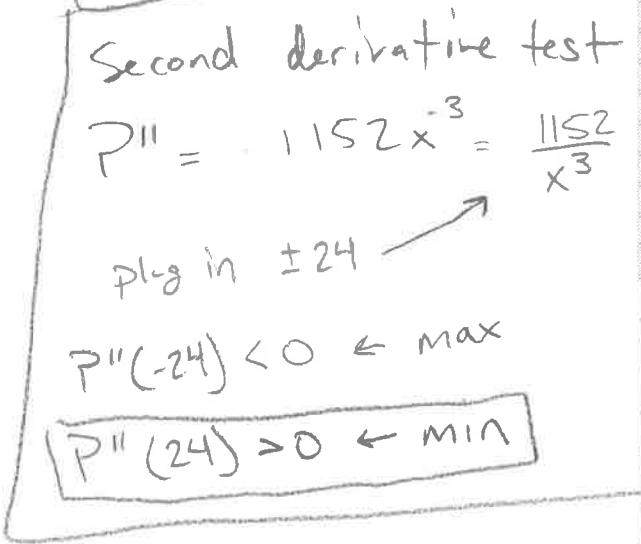 Second derivative test
P'' = 1152x⁻³ = 1152/x³
plug in ±24
P''(-24) < 0 ← max
P''(24) > 0 ← min